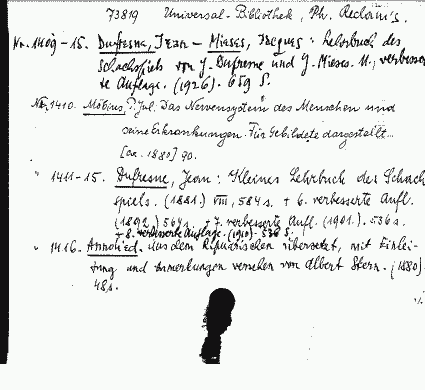 73819 Universal-Bibliothek, Ph. Reclam's.
Nr. 1409-15. Dufresne, Jean - Mieses, Jacques: Lehrbuch des
Schachspiels von J. Dufresne und J. Mieses. 11., verbesser-
te Auflage. (1926). 659 S.
Nr. 1410. Möbius, P. Jul. Das Nervensystem des Menschen und
seine Erkrankungen. Für Gebildete dargestellt...
[ca. 1880] 90.
" 1411-15. Dufresne, Jean: Kleines Lehrbuch des Schach-
spiels. (1881.) VIII, 584 s. + 6. verbesserte Aufl.
(1892.) 564 s. + 7. verbesserte Aufl. (1901.). 536 s.
+ 8. verbesserte Auflage. (1910) - 536 S.
" 1416. Annolied. Aus dem Ripuarischen übersetzt, mit Einlei-
tung und Anmerkungen versehen von Albert Stern. (1880)
48 s.